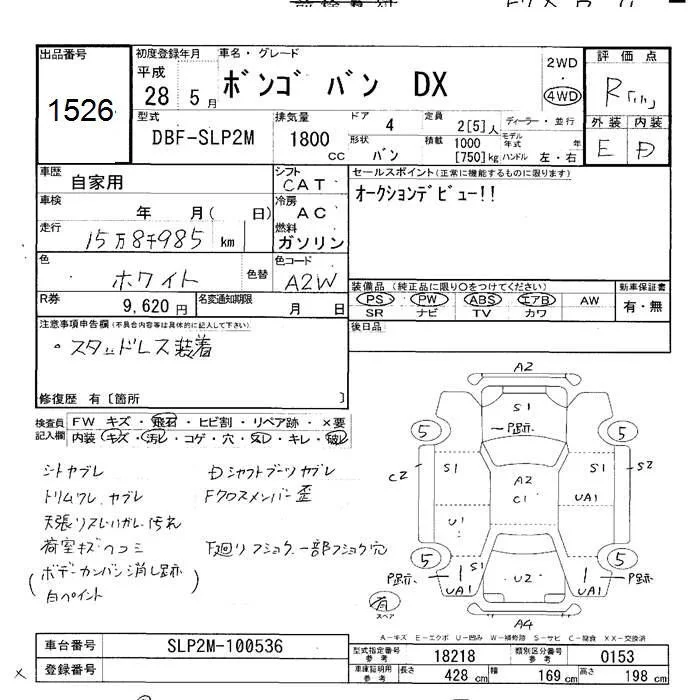 出品番号
1526
初度登録年月
平成
28 5月
車名・グレード
ボンゴ バン DX
2WD
・
4WD
評価点
R
型式
DBF-SLP2M
排気量
1800
cc
ドア
4
形状
バン
定員
2[5]人
積載
1000
[750]kg
ディーラー・並行
モデル年式 年
ハンドル 左・右
外装 内装
E D
車歴
自家用
シフト
CAT
セールスポイント(正常に機能するものに限ります)
オークションデビュー!!
車検
年 月( 日)
冷房
AC
走行
15万8千985 km
燃料
ガソリン
色
ホワイト
色替
色コード
A2W
装備品(純正品に限り○をつけてください)
PS PW ABS エアB AW
SR ナビ TV カワ
新車保証書
有・無
R券
9,620円
名変通知期限
月 日
後日品
注意事項申告欄(不具合内容等は具体的に記入して下さい)
・スタッドレス装着
修復歴 有〔箇所 〕
検査員記入欄
FW キズ・飛石・ヒビ割・リペア跡・×要
内装・キズ・汚れ・コゲ・穴・スレ・キレ・破れ
シートヤブレ
Dシャフトブーツヤブレ
トリムワレ、ヤブレ
Fクロスメンバー歪
天張リスレハガレ汚れ
荷室キズヘコミ
下廻りフショク、一部フショク穴
(ボデーカンバン消し跡
白ペイント)
A2
S1
P跡
5 5
C2 S1 A2 C1 S1 S2
UA1
U1
5 5
P跡 UA1 S1 U2 UA1 P跡
有
スペア
A4
A-キズ E-エクボ U-凹み W-補修跡 S-サビ C-腐食 XX-交換済
車台番号
SLP2M-100536
型式指定番号
参考
18218
類別区分番号
参考
0153
登録番号
車庫証明用
参考
長さ
428 cm
幅
169 cm
高さ
198 cm
×